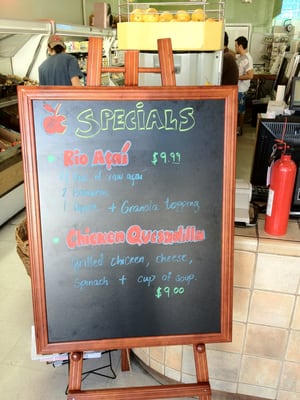 SPECIALS
Rio Açaí $9.99
of raw açaí
2 Bananas
1 Apple + Granola topping
Chicken Quesadilla
Grilled chicken, cheese,
Spinach + cup of soup.
$9.00